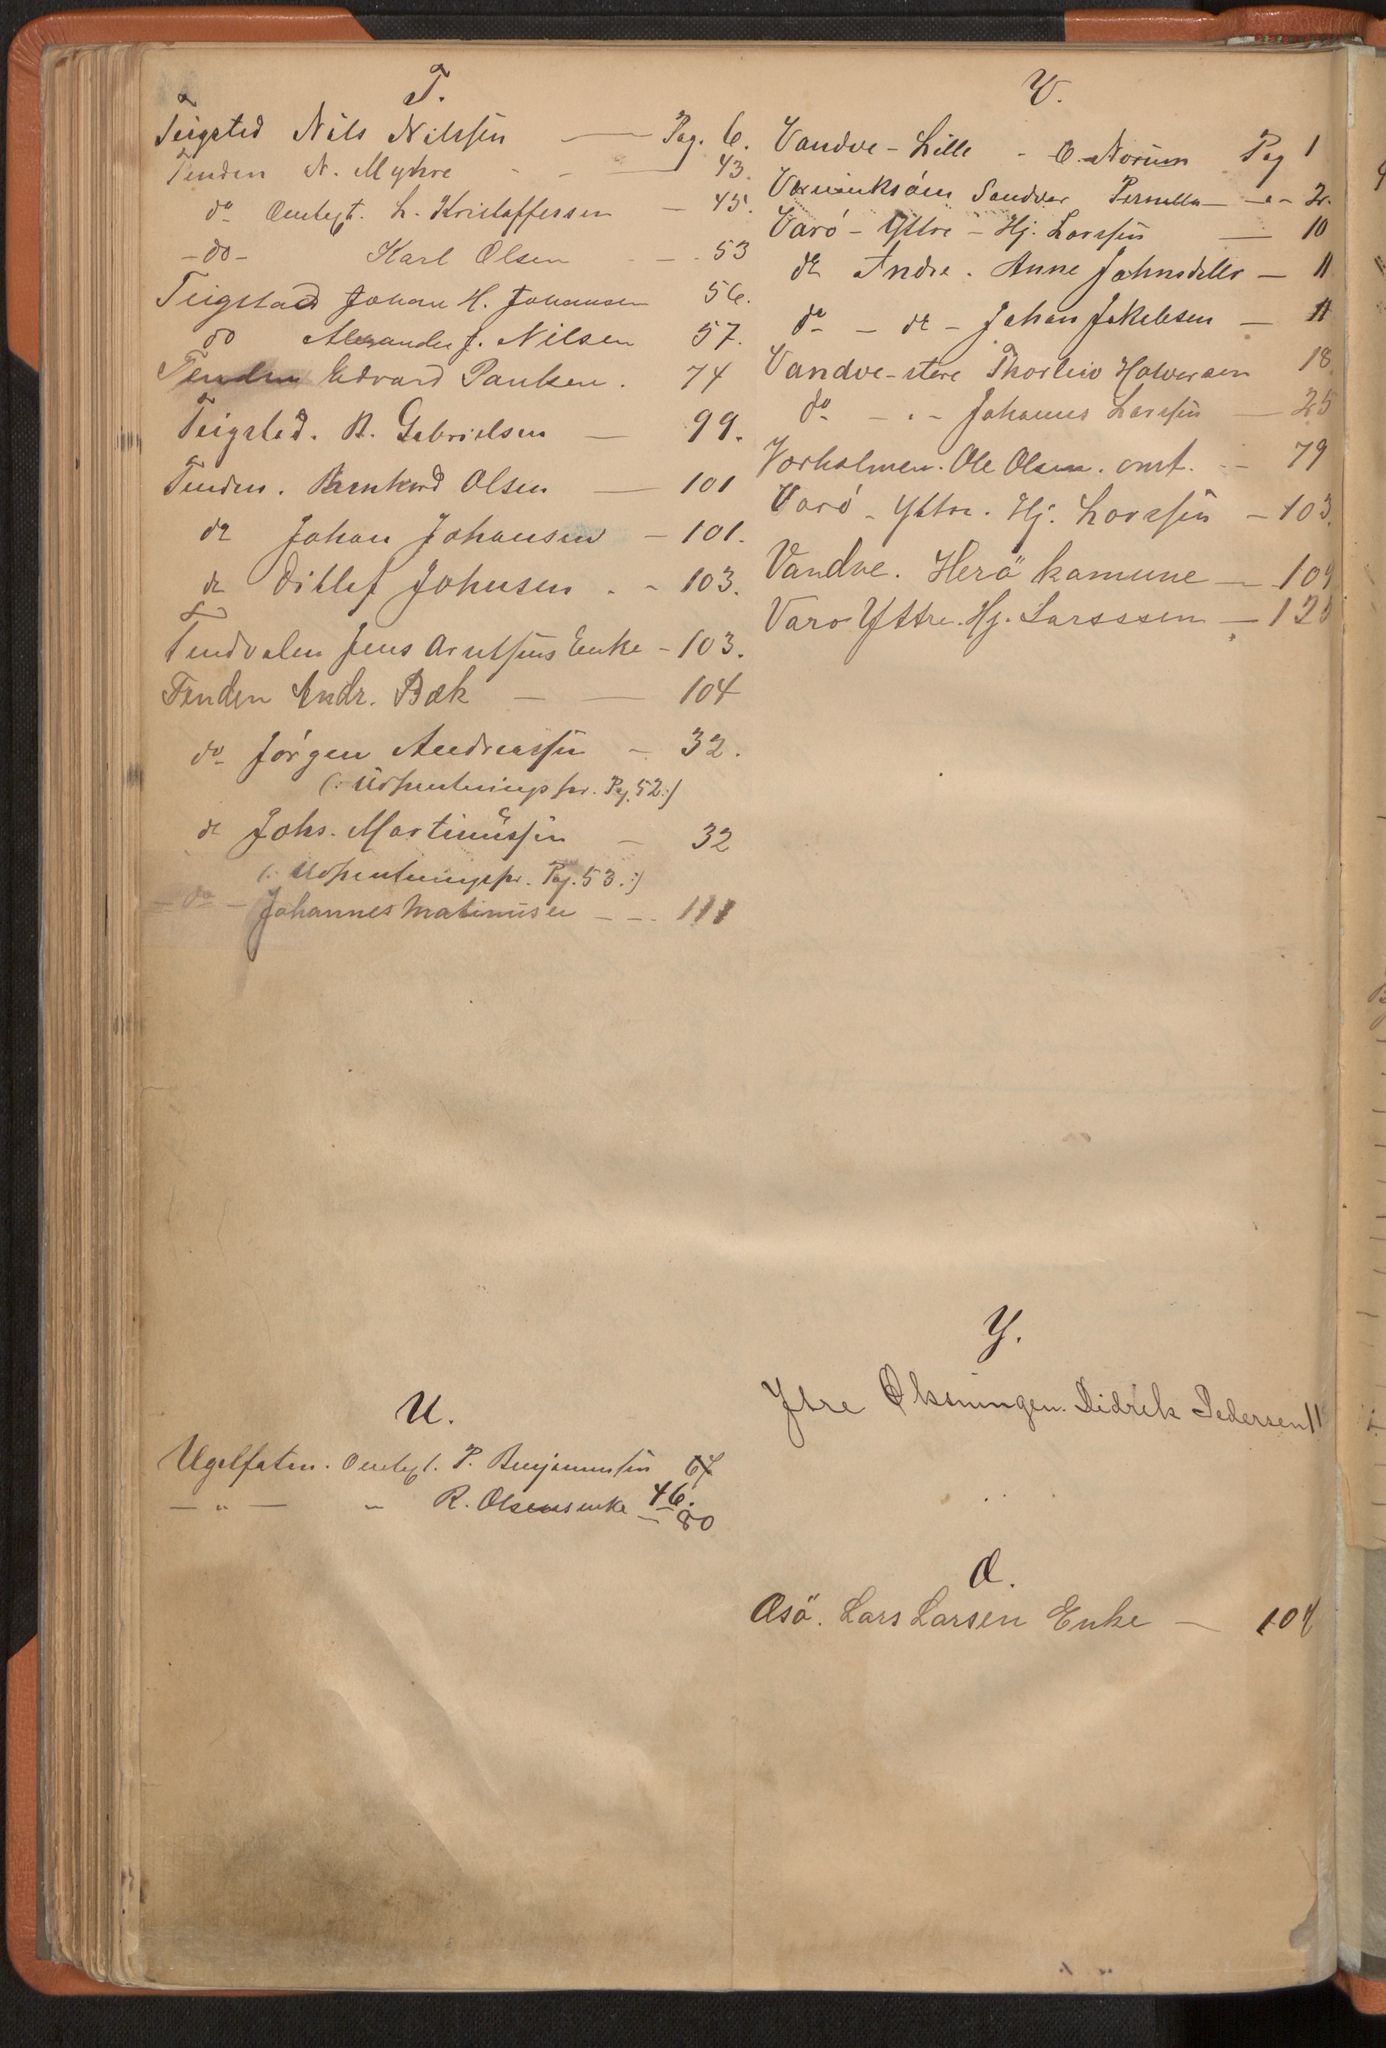 T.
Teigsted Nils Nilssen — Pag. 6.
Tenden N. Myhre - - — 43.
do Omtegt. L. Kristoffersen — 45.
-do- Karl Olsen - - 53
Teigstad Johan H. Johansen 56.
do Alexander J. Nilsen 57.
Tenden Edvard Paulsen. 74
Teigsted. B. Gabrielsen — 99.
Tenden. Bernhard Olsen — 101
do Johan Johansen — 101.
do Ditlef Johnsen. - 103.
Tendvalen Jens Arntsens Enke - 103.
Tenden Andr. Bæk — — 104
do Jørgen Andreassen - 32.
(: Udskiftningsfor. Pag. 52 :)
do Johs. Martinussen — 32
(: Udskiftningsfor. Pag. 53. :)
- do - Johannes Matinusen - - - 111
U.
Ugelfaten. Omtegt. P. Benjaminsen 67
— " — " R. Olsens enke 46.
— 80
V.
Vandve - Lille - O. Norum Pag 1
Sandvær Pernille — " - 2.
Varö - Yttre - Hj. Larssen — 10
do Indre. Anne Johnsdttr — 11
do - do - Johan Jakobsen — 11
Vandve - store Thorleiv Halversen 18
do - " - Johannes Larssen — 25
Vorholmen. Ole Olsen. omt. - - 79
Varö - Yttre. Hj. Larssen — 103.
Vandve. Herö kamune — 109
Varo Yttre. Hj. Larsssen — 125
Y.
Ytre Øksningen. Didrik Pedersen 11
Ø.
Øsö. Lars Larsen Enke — 104